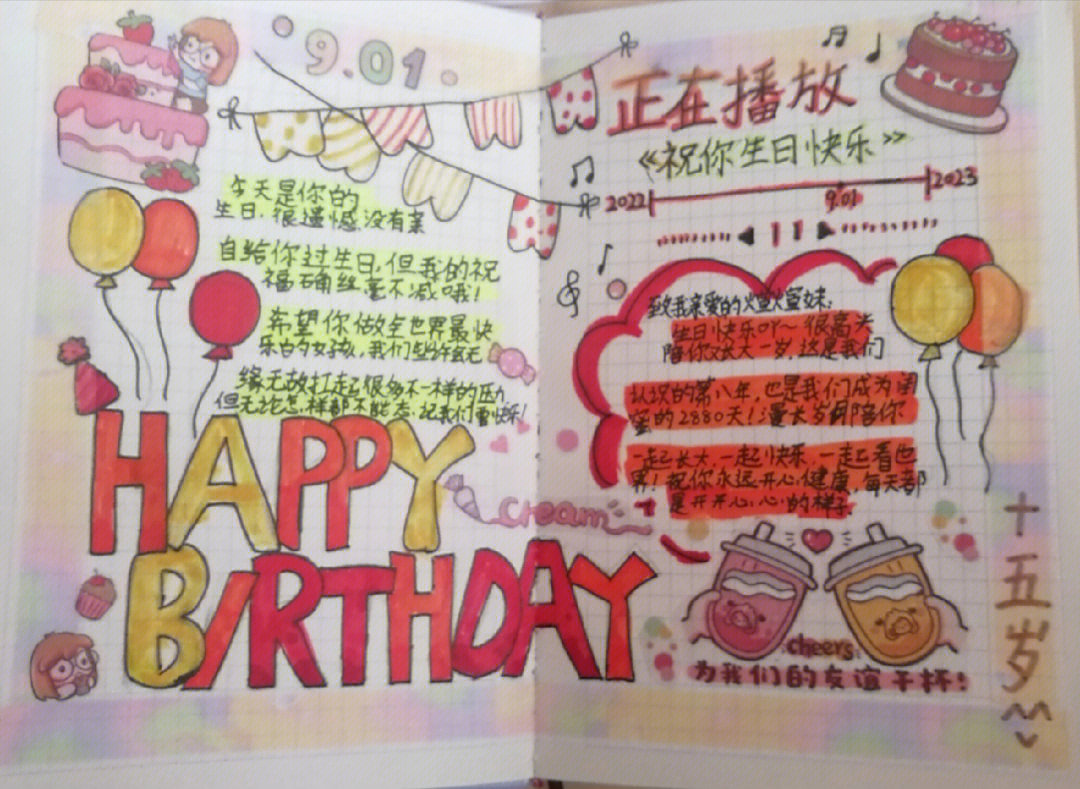 9.01
今天是你的
生日,很遗憾没有亲
自给你过生日,但我的祝
福确丝毫不减哦!
希望你做全世界最快
乐的女孩,我们
缘无故扛起很多不一样的压力,
但无论怎样都不能忘记我们要快乐!
HAPPY
BIRTHDAY
cream
正在播放
《祝你生日快乐》
2022 9.01 2023
致我亲爱的妹:
生日快乐吖~很高兴
陪你又长大一岁,这是我们
认识的第八年,也是我们成为闺
蜜的2880天!漫长岁月陪你
一起长大,一起快乐,一起看世
界!祝你永远开心健康,每天都
是开开心心的样子
cheers
为我们的友谊干杯!
十五岁